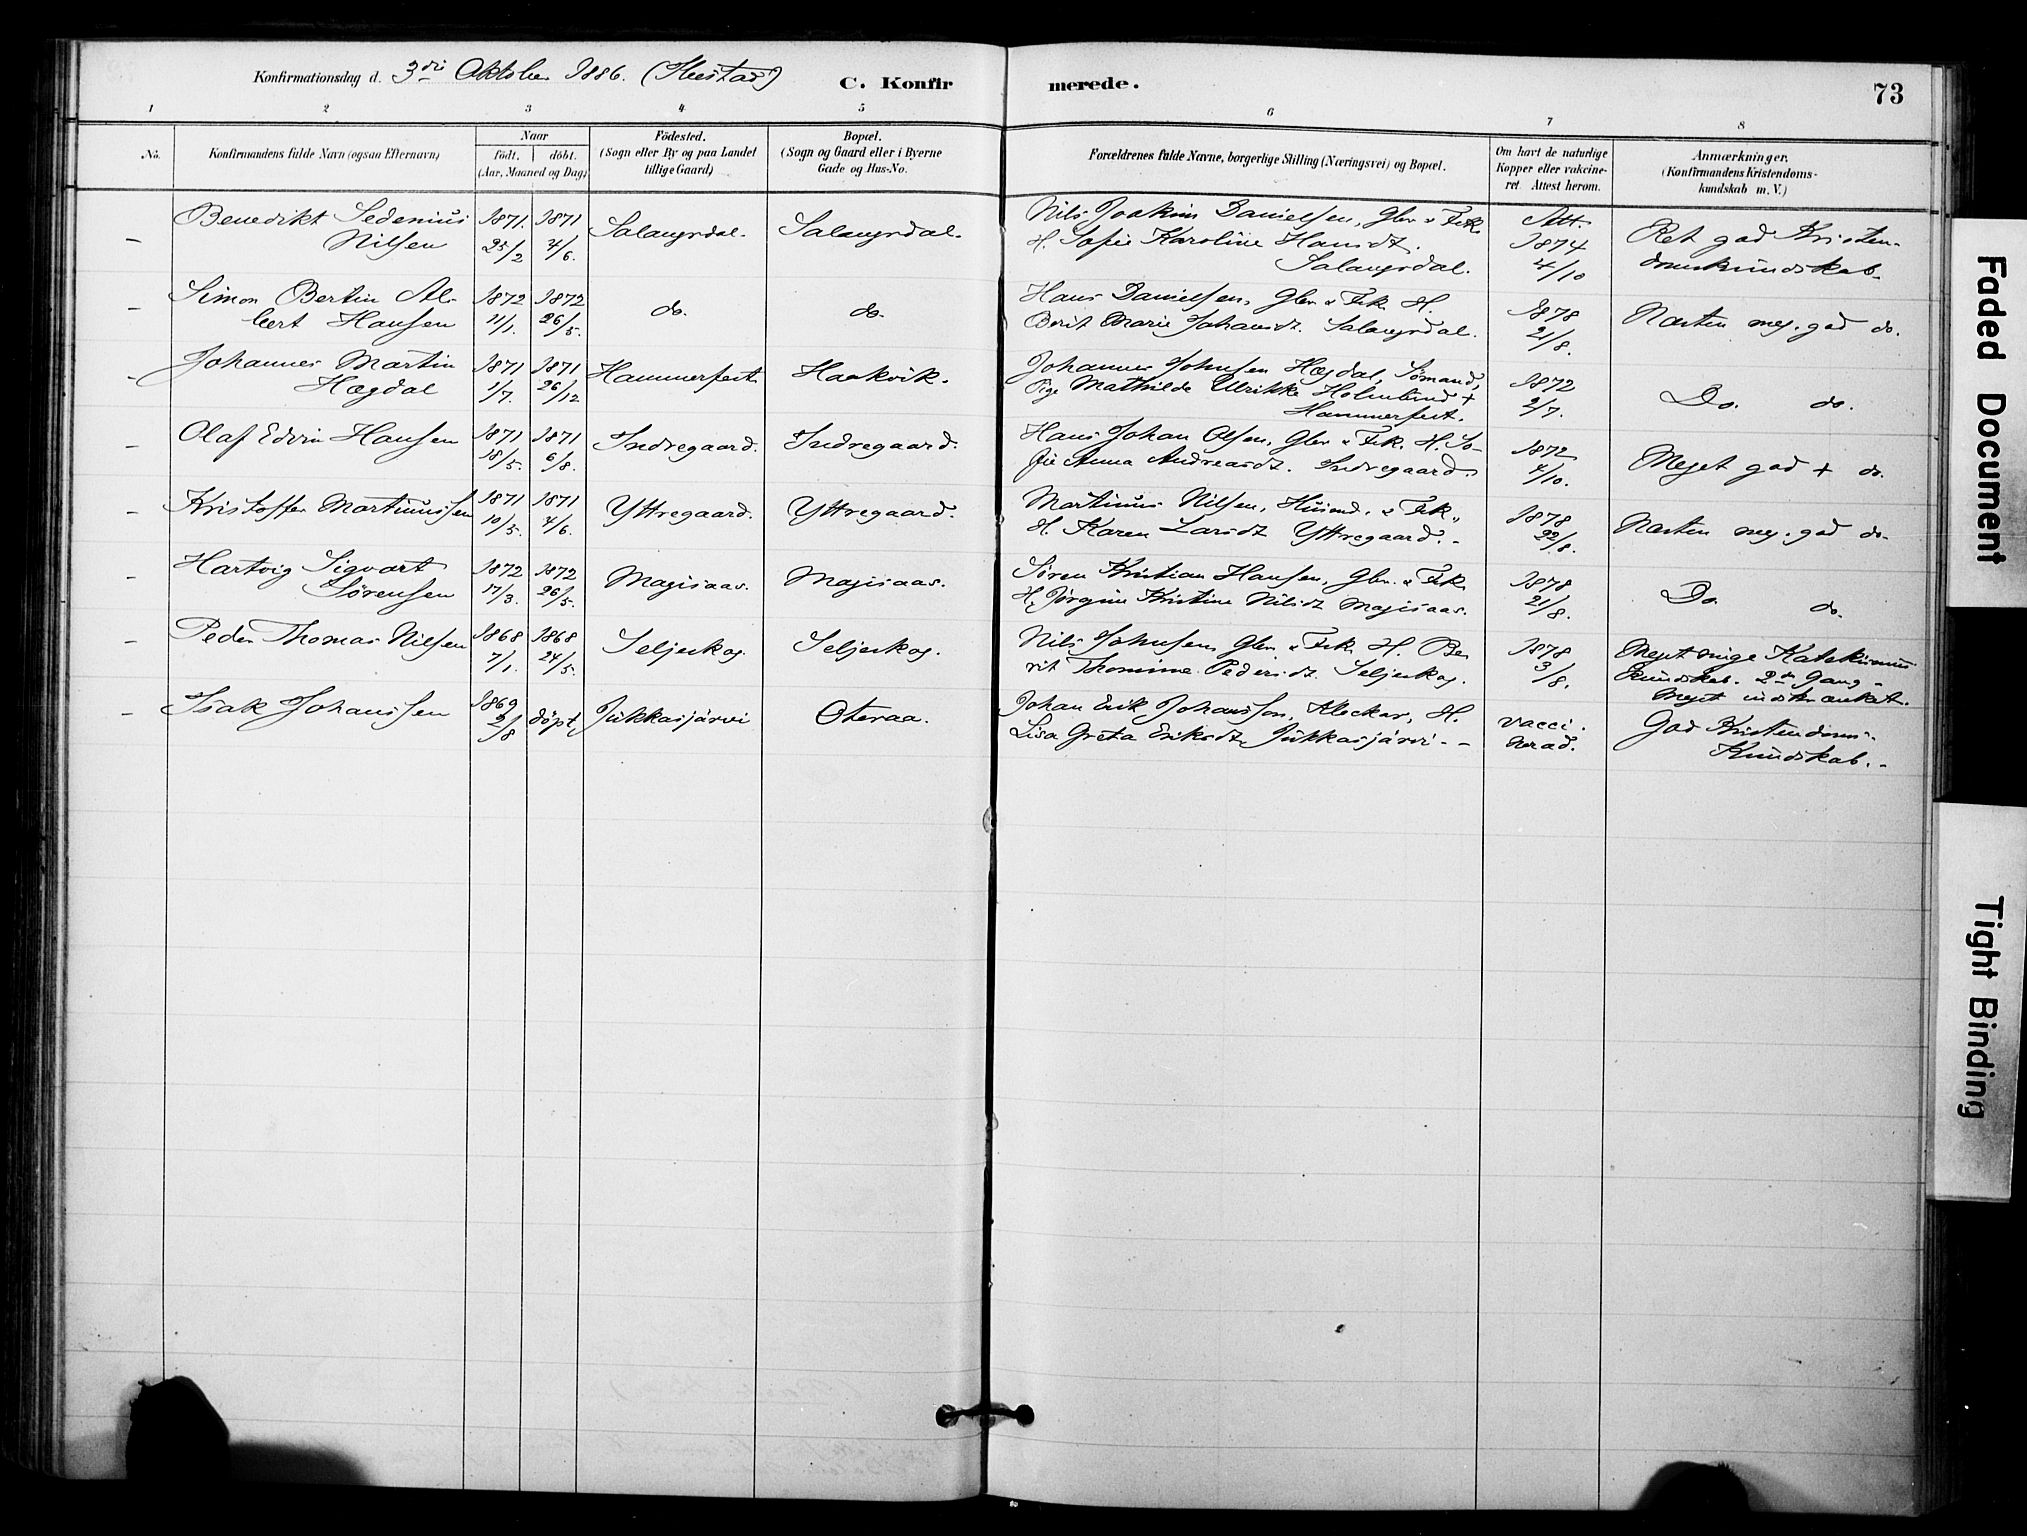 Konfirmationsdag d. 3die Oktober 1886. (Ibestad)
C. Konfirmerede.
73
1 2 3 4 5 6 7 8
No.
Konfirmandens fulde Navn (ogsaa Efternavn)
Naar
födt. döbt.
(Aar, Maaned og Dag)
Födested.
(Sogn eller By og paa Landet
tillige Gaard)
Bopæl.
(Sogn og Gaard eller i Byerne
Gade og Hus-No.
Forældrenes fulde Navne, borgerlige Stilling (Næringsvei) og Bopæl.
Om havt de naturlige
Kopper eller vakcine-
ret. Attest herom.
Anmærkninger.
(Konfirmandens Kristendoms-
kundskab m. V.)
– Benedikt Sedenius
Nilsen
1871. 25/2
1871 4/6.
Salangsdal.
Salangsdal.
Nils Joakim Danielsen, Gbr. & Fisk.
H. Sofie Karoline Hansdt.
Salangsdal.
Att.
1874
4/10
Ret god Kristen-
domskundskab.
– Simon Bertin Al-
bert Hansen
1872 11/1.
1872 26/5.
do.
do.
Hans Danielsen, Gbr. & Fisk. H.
Berit Marie Johansdt. Salangsdal.
1878
21/8.
Næsten meg. god do.
– Johannes Martin
Hægdal
1871 1/7.
1871 26/12
Hammerfest
Haakvik.
Johannes Johnsen Hægdal, Sömand,
Pige Mathilde Ulrikke Holmlund +
Hammerfest.
1872
2/7.
Do. do.
– Olaf Edvin Hansen
1871 18/5.
1871 6/8.
Indregaard.
Indregaard.
Hans Johan Olsen, Gbr. & Fisk. H. So-
fie Anna Andreasdt. Indregaard
1872
4/10.
Meget god + do.
– Kristoffer Martinussen
1871 10/5.
1871 4/6.
Yttregaard.
Yttregaard.
Martinus Nilsen, Husmd. & Fisk.,
H. Karen Larsdt Yttregaard. -
1878
22/8.
Næsten meg. god do.
– Hartvig Sigvart
Sørensen
1872 17/3.
1872 26/5.
Magisaas.
Magisaas.
Søren Kristian Hansen, Gbr. & Fisk
H. Jørgine Kristine Nilsdt Magisaas.
1878
21/8.
Do. do.
– Peder Thomas Nilsen
1868 7/1.
1868 24/5.
Seljeskog.
Seljeskog.
Nils Johnsen Gbr. & Fisk. H. Be-
rit Thomine Pedersdt. Seljeskog.
1878
3/8.
Meget ringe Katekismus
Kundskab. 2den Gang -
Meget indskrænket.
– Isak Johanssen
1869 2/8
döpt
Jukkasjärvi
Oteraa.
Johan Erik Johansson, Klockar, H.
Lisa Greta Eriksdt, Jukkasjärvi - -
vacci-
nerad.
God Kristendoms-
Kundskab. -
Faded Document
Tight Binding